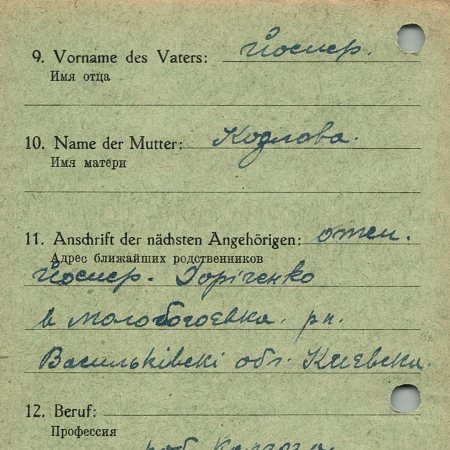 9. Vorname des Vaters: Йосиер.
Имя отца
10. Name der Mutter: Козлова.
Имя матери
11. Anschrift der nächsten Angehörigen: отец.
Адрес ближайших родственников
Йосиер. Горіченко
в рн.
Васильківскі обл. Киевска.
12. Beruf:
Профессия
роб колгоза